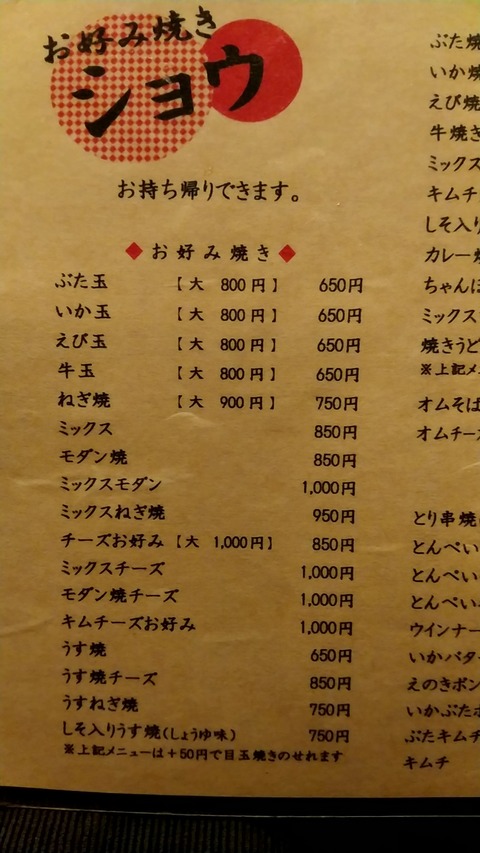 お好み焼き
ショウ
お持ち帰りできます。
◆お好み焼き◆
ぶた玉 【大 800円】 650円
いか玉 【大 800円】 650円
えび玉 【大 800円】 650円
牛玉 【大 800円】 650円
ねぎ焼 【大 900円】 750円
ミックス 850円
モダン焼 850円
ミックスモダン 1,000円
ミックスねぎ焼 950円
チーズお好み 【大 1,000円】 850円
ミックスチーズ 1,000円
モダン焼チーズ 1,000円
キムチーズお好み 1,000円
うす焼 650円
うす焼チーズ 850円
うすねぎ焼 750円
しそ入りうす焼(しょうゆ味) 750円
※上記メニューは+50円で目玉焼きのせれます
ぶた焼
いか焼
えび焼
牛焼き
ミックス
キムチ
しそ入り
カレー
ちゃん
ミックス
焼きうど
※上記メニ
オムそば
オムチー
とり串焼
とんぺい
とんぺい
とんぺい
ウインナー
いかバター
えのきポン
いかぶた
ぶたキムチ
キムチ